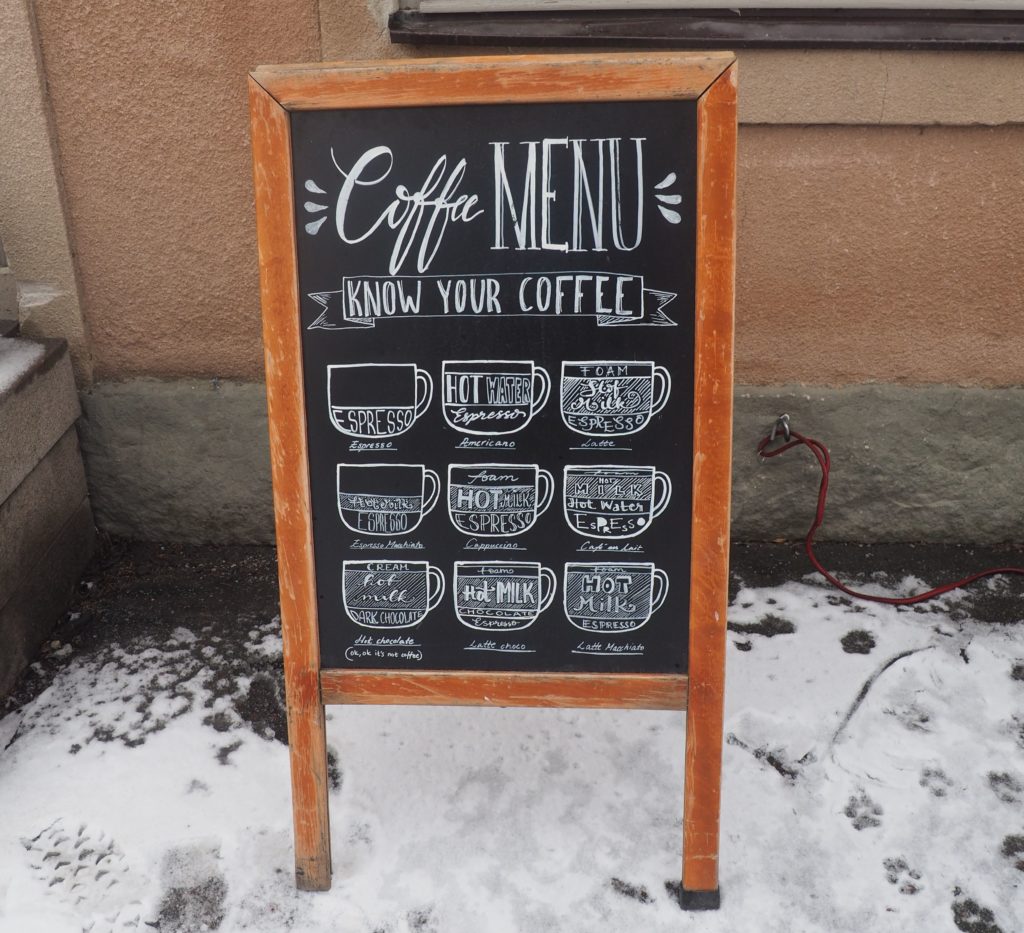 Coffee MENU
KNOW YOUR COFFEE
ESPRESSO
Espresso
HOT WATER
Espresso
Americano
FOAM
Hot
Milk
ESPRESSO
Latte
Hot Milk
ESPRESSO
Espresso Macchiato
foam
HOT MILK
ESPRESSO
Cappuccino
foam
HOT
MILK
Hot Water
ESPRESSO
Café au Lait
CREAM
hot
milk
DARK CHOCOLATE
Hot chocolate
(ok, ok it's not coffee)
foam
Hot MILK
CHOCOLATE
Espresso
Latte choco
foam
HOT
Milk
ESPRESSO
Latte Macchiato